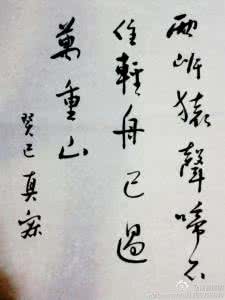 兩岸猿聲啼不
住輕舟已過
萬重山
癸巳真寀